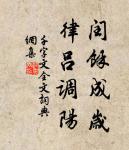 閏餘成歲
律吕調陽
千字文全文詞典
網集